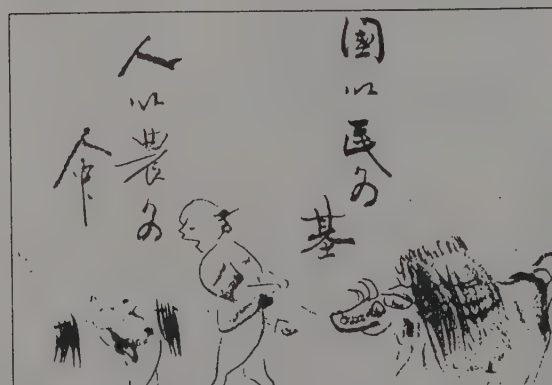 國以民为
基
人以農为
命